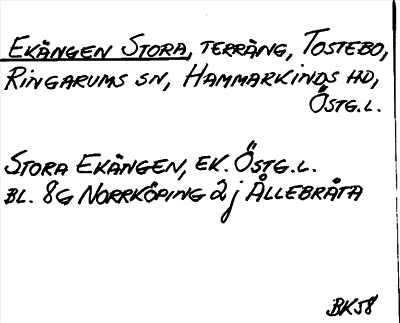 EKÄNGEN STORA, TERRÄNG, TOSTEBO,
RINGARUMS SN, HAMMARKINDS HD,
ÖSTG.L.
STORA EKÄNGEN, EK. ÖSTG.L.
BL. 8G NORRKÖPING 2j ÅLLEBRÅTA
BK58